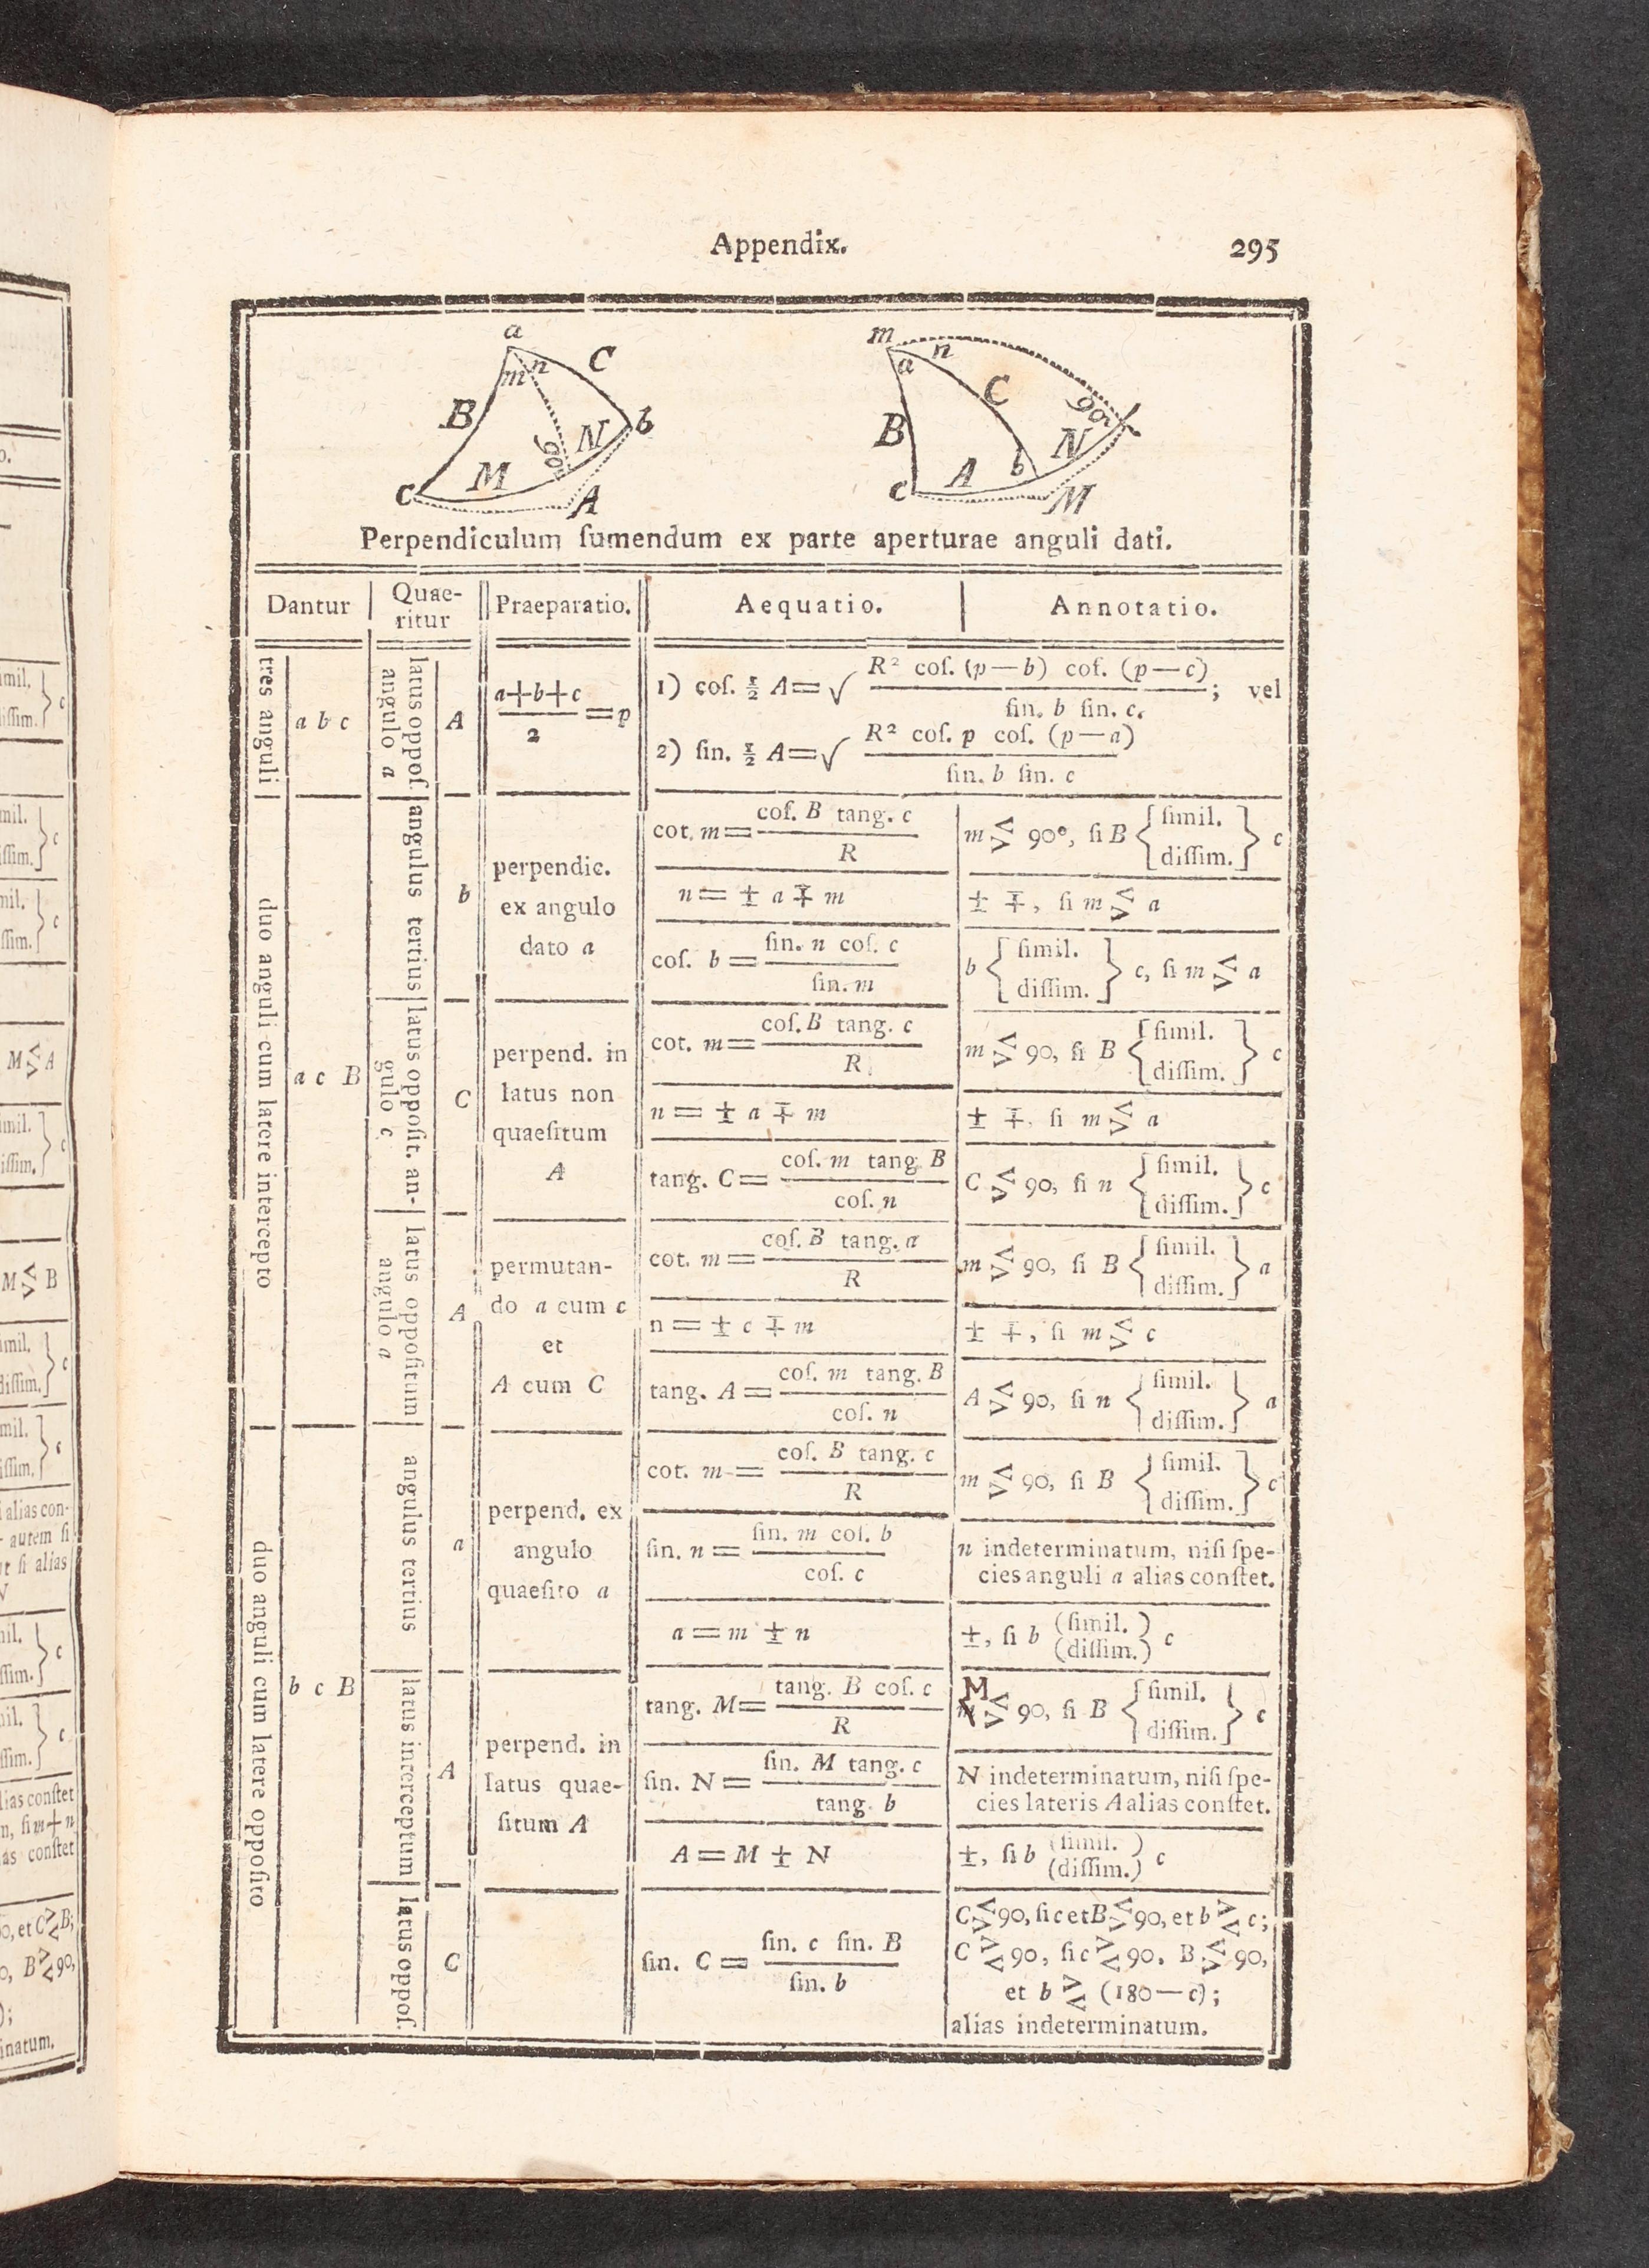 Appendix.
295
a
m n
C
B
N
b
M
90
c
A
m
n
a
C
90
B
N
A
b
c
M
Perpendiculum ſumendum ex parte aperturae anguli dati.
Dantur
Quae-
ritur
Praeparatio.
Aequatio.
Annotatio.
tres anguli
a b c
latus oppoſ.
angulo a
A
a+b+c
2
=p
1) coſ. ½ A=√ R² coſ. (p—b) coſ. (p—c)
ſin. b ſin. c.
; vel
2) ſin. ½ A=√ R² coſ. p coſ. (p—a)
ſin. b ſin. c
duo anguli cum latere intercepto
a c B
angulus tertius
b
perpendic.
ex angulo
dato a
cot. m= coſ. B tang. c
R
m ≶ 90°, ſi B { ſimil.
diſſim. } c
n = ± a ∓ m
± ∓, ſi m ≶ a
coſ. b = ſin. n coſ. c
ſin. m
b { ſimil.
diſſim. } c, ſi m ≶ a
latus oppoſit. an-
gulo c
C
perpend. in
latus non
quaeſitum
A
cot. m= coſ. B tang. c
R
m ≶ 90, ſi B { ſimil.
diſſim. } c
n = ± a ∓ m
± ∓, ſi m ≶ a
tang. C= coſ. m tang. B
coſ. n
C ≶ 90, ſi n { ſimil.
diſſim. } c
latus oppoſitum
angulo a
A
permutan-
do a cum c
et
A cum C
cot. m= coſ. B tang. a
R
m ≶ 90, ſi B { ſimil.
diſſim. } a
n = ± c ∓ m
± ∓, ſi m ≶ c
tang. A = coſ. m tang. B
coſ. n
A ≶ 90, ſi n { ſimil.
diſſim. } a
duo anguli cum latere oppoſito
b c B
angulus tertius
a
perpend. ex
angulo
quaeſito a
cot. m = coſ. B tang. c
R
m ≶ 90, ſi B { ſimil.
diſſim. } c
ſin. n = ſin. m coſ. b
coſ. c
n indeterminatum, niſi ſpe-
cies anguli a alias conſtet.
a = m ± n
±, ſi b (ſimil. )
(diſſim.) c
latus interceptum
A
perpend. in
latus quae-
ſitum A
tang. M= tang. B coſ. c
R
M
≶ 90, ſi B { ſimil.
diſſim. } c
ſin. N = ſin. M tang. c
tang. b
N indeterminatum, niſi ſpe-
cies lateris A alias conſtet.
A = M ± N
±, ſi b (ſimil. )
(diſſim.) c
latus oppoſ.
C
ſin. C = ſin. c ſin. B
ſin. b
C ≶ 90, ſic et B ≶ 90, et b ≷ c;
C ≷ 90, ſi c ≷ 90, B ≶ 90,
et b ≷ (180—c);
alias indeterminatum.